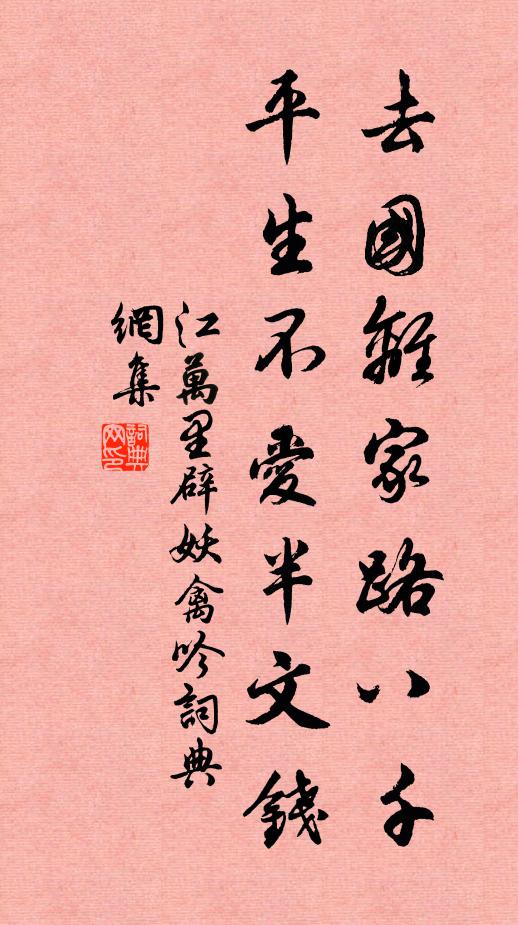 去國離家路八千
平生不愛半文錢
江萬里辟妖禽吟詞典
網集
詞典
网印